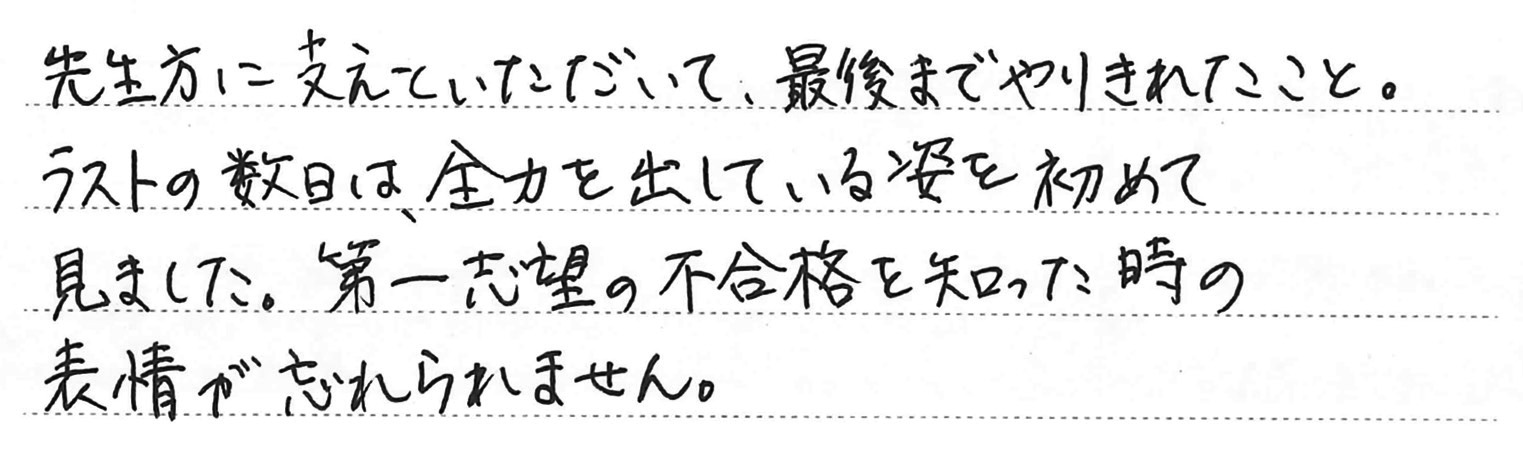 先生方に支えていただいて、最後までやりきれたこと。
ラストの数日は、全力を出している姿を初めて
見ました。第一志望の不合格を知った時の
表情が忘れられません。